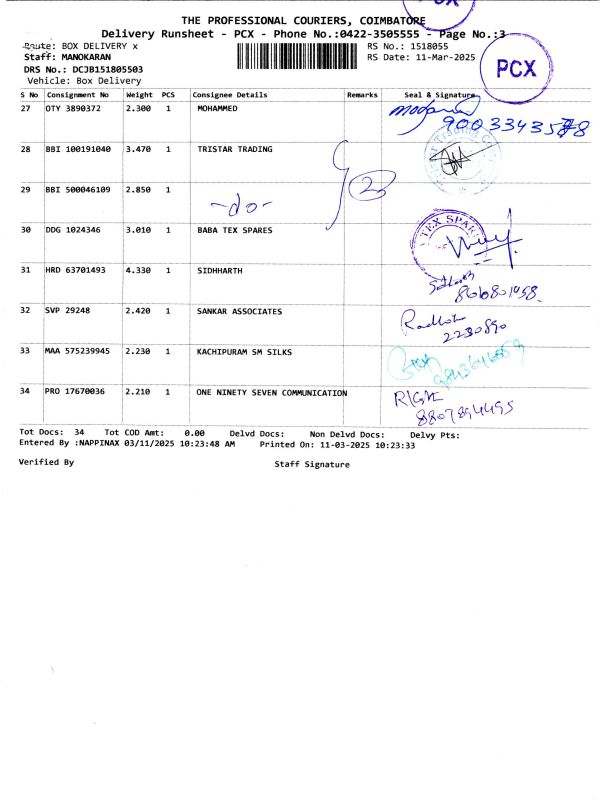 THE PROFESSIONAL COURIERS, COIMBATORE
Delivery Runsheet - PCX - Phone No.:0422-3505555 - Page No.:3
Route: BOX DELIVERY x
RS No.: 1518055
Staff: MANOKARAN
RS Date: 11-Mar-2025
DRS No.: DCJB151805503
Vehicle: Box Delivery
PCX
S No Consignment No Weight PCS Consignee Details Remarks Seal & Signature
27 OTY 3890372 2.300 1 MOHAMMED
28 BBI 100191040 3.470 1 TRISTAR TRADING
29 BBI 500046109 2.850 1 -do-
30 DDG 1024346 3.010 1 BABA TEX SPARES
TEX SPARES
31 HRD 63701493 4.330 1 SIDHHARTH
32 SVP 29248 2.420 1 SANKAR ASSOCIATES
2230890
33 MAA 575239945 2.230 1 KACHIPURAM SM SILKS
34 PRO 17670036 2.210 1 ONE NINETY SEVEN COMMUNICATION
8807894495
Tot Docs: 34 Tot COD Amt: 0.00 Delvd Docs: Non Delvd Docs: Delvy Pts:
Entered By :NAPPINAX 03/11/2025 10:23:48 AM Printed On: 11-03-2025 10:23:33
Verified By Staff Signature